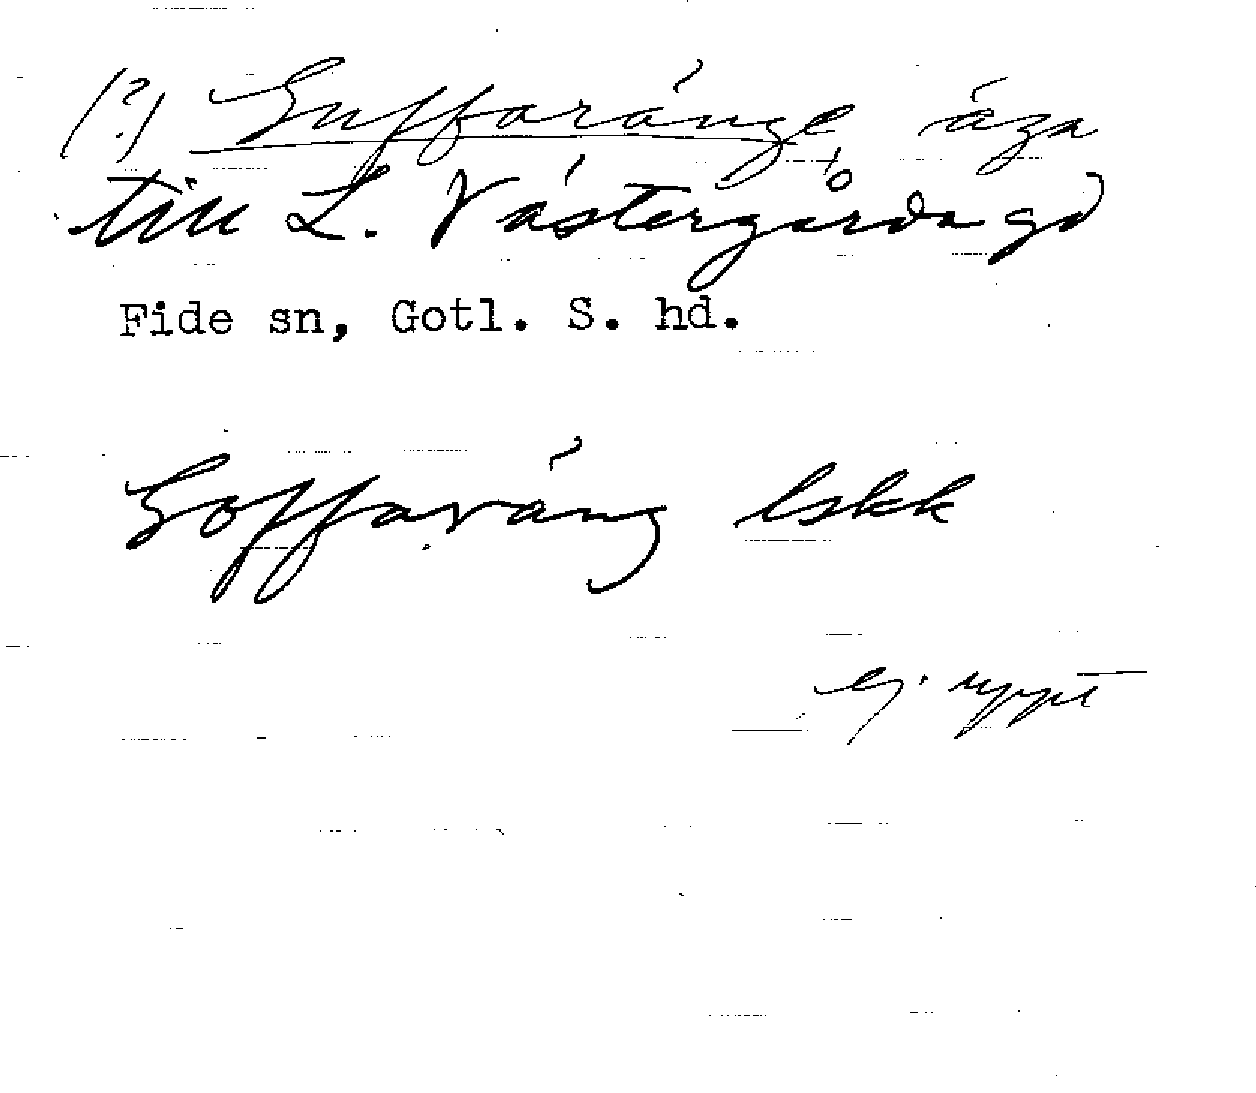 (?) Guffaränge, äga
till L. Västergårda gd
Fide sn, Gotl. S. hd.
Goffaräng lskk
ej uppt